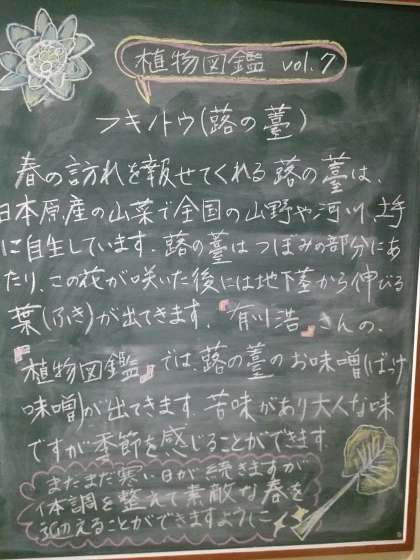 植物図鑑 vol.7
フキノトウ(蕗の薹)
春の訪れを報せてくれる蕗の薹は、
日本原産の山菜で全国の山野や河川、土手
に自生しています。蕗の薹はつぼみの部分にあ
たり、この花が咲いた後には地下茎から伸びる
葉(ふき)が出てきます。『有川浩』さんの、
『植物図鑑』では、蕗の薹のお味噌(ばっけ
味噌)が出てきます。苦味があり大人な味
ですが季節を感じることができます。
まだまだ寒い日が続きますが
体調を整えて素敵な春を
迎えることができますように